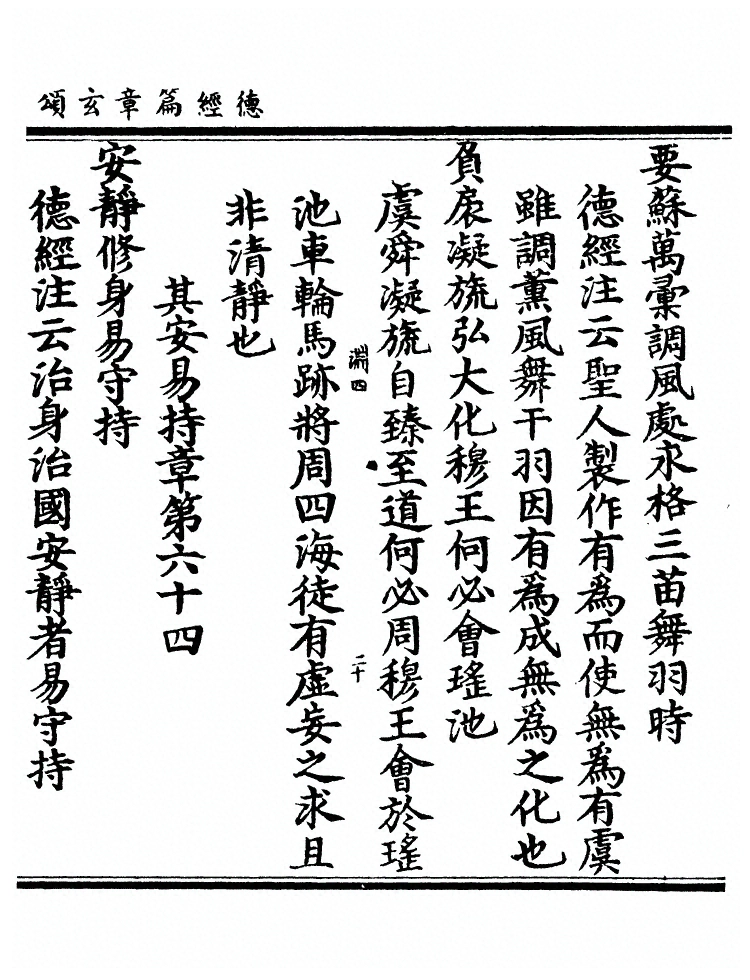 德經篇章玄頌
要蘇萬彙調風處求格三苗舞羽時
德經注云聖人製作有爲而使無爲有虞
雖調薰風舞干羽因有爲成無爲之化也
負扆凝旒弘大化穆王何必會瑤池
虞舜凝旒自臻至道何必周穆王會於瑤
淵四
二十
池車輪馬跡將周四海徒有虛妄之求且
非清靜也
其安易持章第六十四
安靜修身易守持
德經注云治身治國安靜者易守持